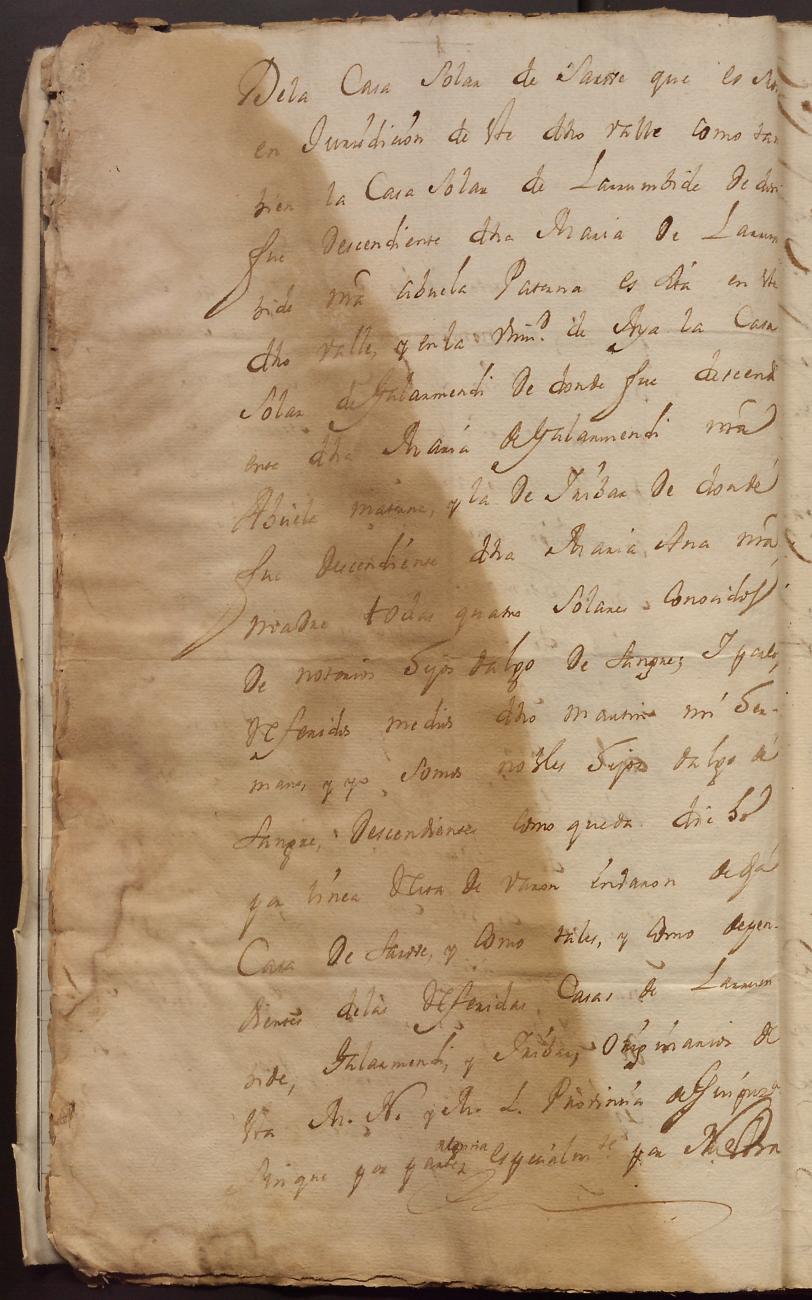 Dela Casa Solar de Sarove que es
en Jurisdicion de Vte dho valle como tan
bien la Casa Solar de Larrumbide De don
fue Descendiente dha Maria De Larrum
bide mia abuela Paterna es ôta en Vte
dho valle, y en la de Aya la Casa
Solar de Galarmendi De donde fue descend
ente dha Maria de Galarmendi mia
Abuela materna, y la De Iribar De donde
fue Descendiente dha Maria Ana mia
madre todas quatro Solares Conocidos
De notorios hijos dalgo De Sangre, I por los
Referidos medios dho mi her-
mano, y yo Somos nobles hijos dalgo de
Sangre, Descendientes Como queda dicho
por linea Reta De varon en varon de dha
Casa De Sarove, y Como tales, y Como depen-
dientes delas Referidas Casas de Larrum
bide, Galarmendi, y Iribar, Originarios de
Vta M. N. y M. L. Provincia de Guipuzcoa
Sin que por parte alguna Especialmte por Nuestra